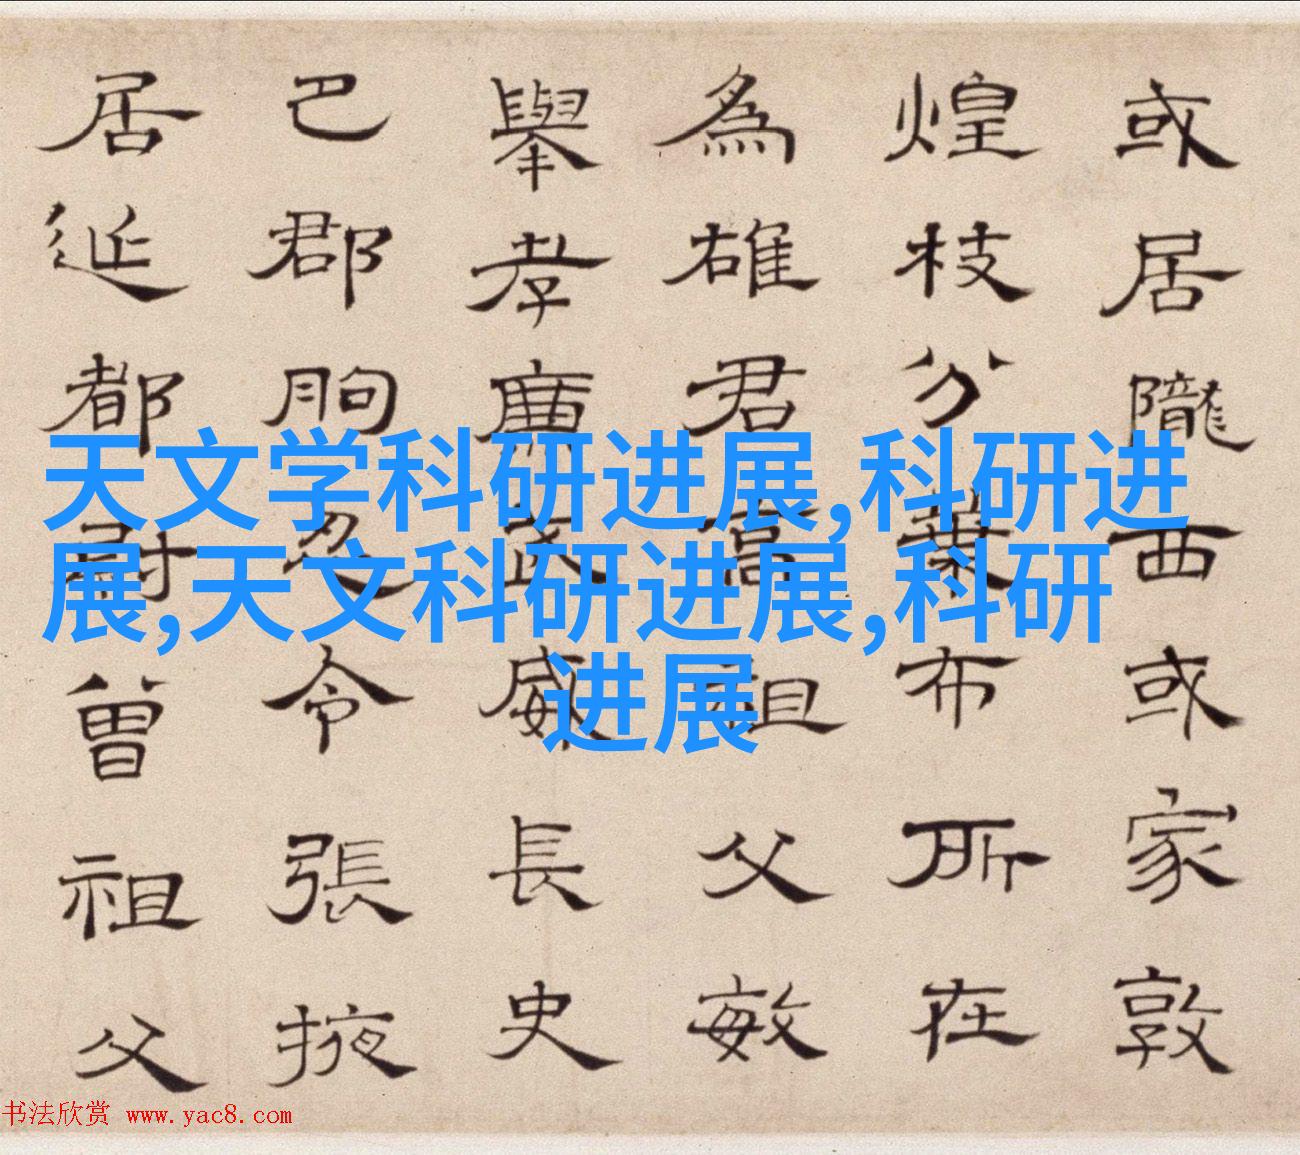 或居隴西或家敦
煌枝分葉布所在
為雄君高祖父敏
舉孝廉武威長史
巴郡朐忍令張掖
居延都尉曾祖父
天文学科研进展,科研进
展,天文科研进展,科研
进展
书法欣赏 www.yac8.com